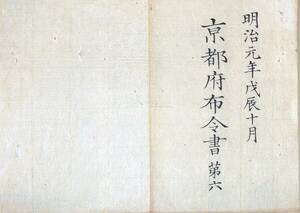 明治元年戊辰十月
京都府布令書 第六